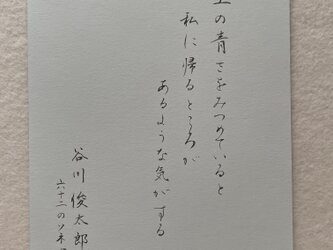 の青さをみつめていると
私に帰るところが
あるような気がする
谷川俊太郎
六十二のソネ